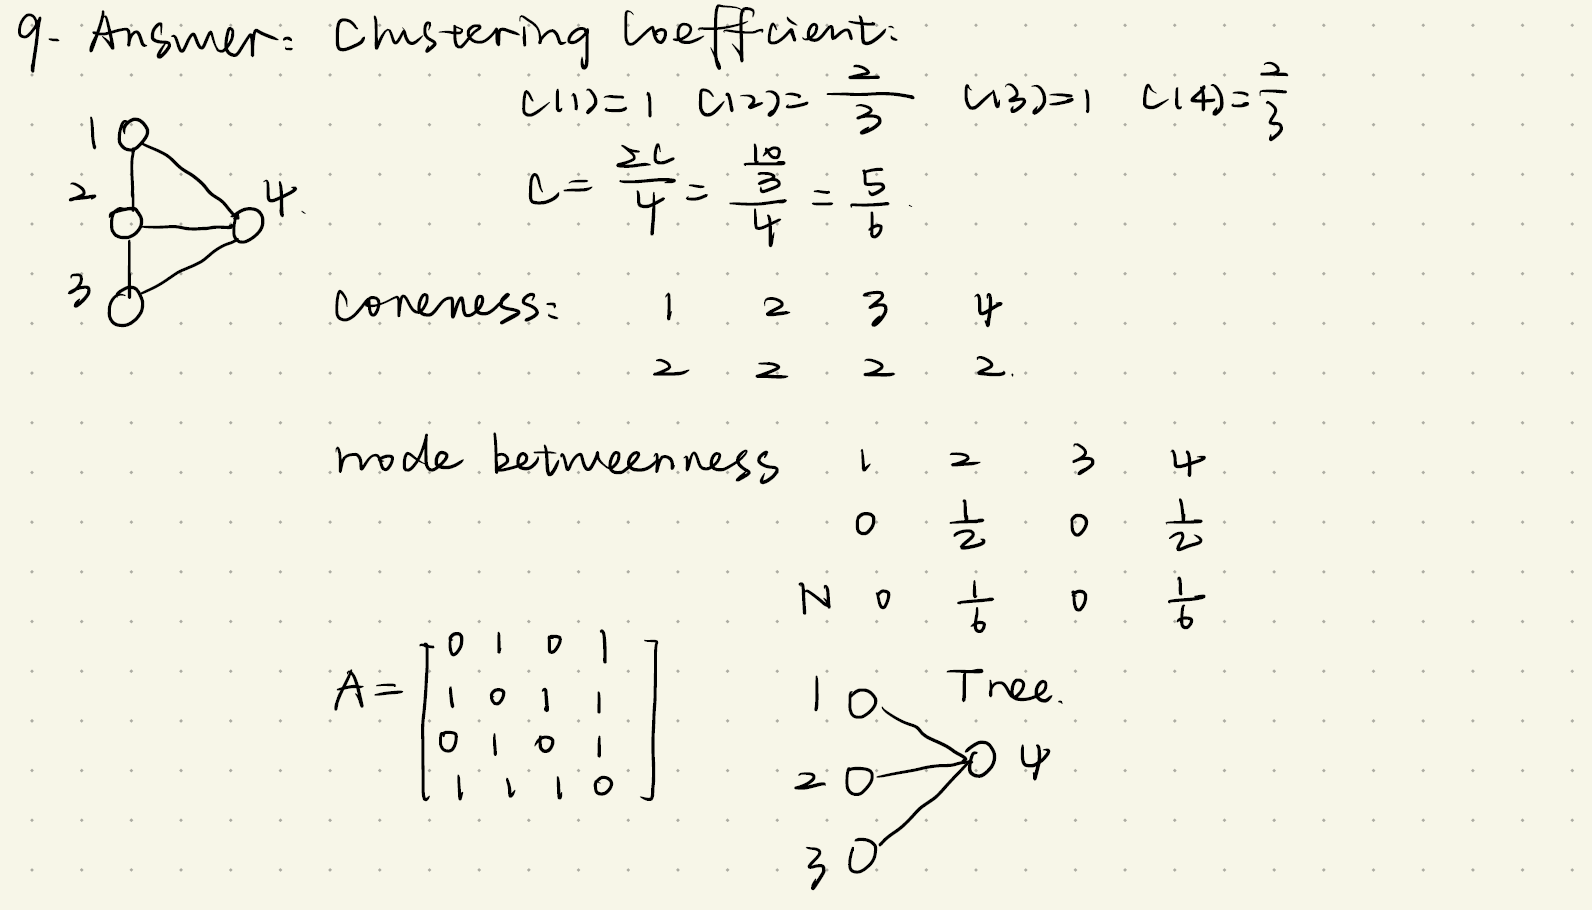 9. Answer: Clustering Coefficient:
C(1)=1 C(2)= 2/3 C(3)=1 C(4)= 2/3
1
2 4.
3
C= ΣC/4 = 10/3/4 = 5/6.
coreness: 1 2 3 4
2 2 2 2.
node betweenness 1. 2 3 4
0 1/2 0 1/2
N 0 1/6 0 1/6
A= [0 1 0 1
1 0 1 1
0 1 0 1
1 1 1 0]
Tree.
1
2 4
3